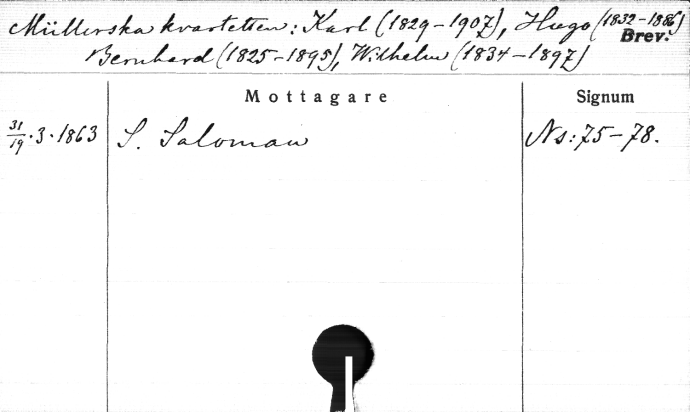 Müllerska kvartetten: Karl (1829-1907), Hugo (1832-1886)
Brev.
Bernhard (1825-1895), Wilhelm (1834-1897)
Mottagare Signum
31/19.3.1863 S. Saloman Ns: 75-78.